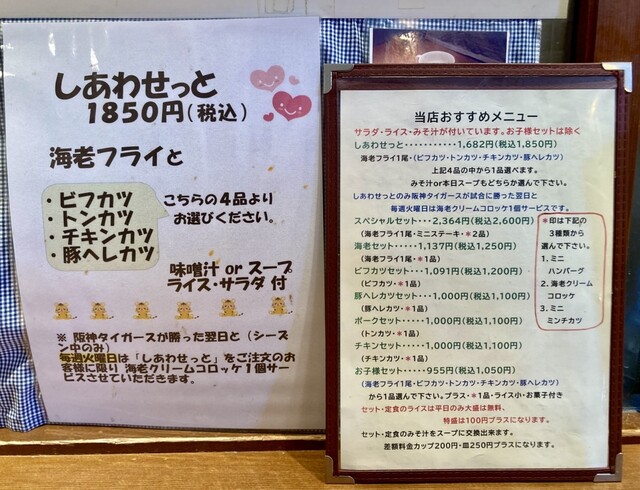 しあわせっと
1850円(税込)
海老フライと
・ビフカツ
・トンカツ
・チキンカツ
・豚ヘレカツ
こちらの4品より
お選びください。
味噌汁 or スープ
ライス・サラダ 付
※ 阪神タイガースが勝った翌日と (シーズ
ン中のみ)
毎週火曜日は「しあわせっと」をご注文のお
客様に限り 海老クリームコロッケ1個サー
ビスさせていただきます。
当店おすすめメニュー
サラダ・ライス・みそ汁が付いています。お子様セットは除く
しあわせっと・・・・・・・・・・・1,682円(税込1,850円)
海老フライ1尾・(ビフカツ・トンカツ・チキンカツ・豚ヘレカツ)
上記4品の中から1品選べます。
みそ汁or本日スープもどちらか選んで下さい。
しあわせっとのみ阪神タイガースが試合に勝った翌日と
毎週火曜日は海老クリームコロッケ1個サービスです。
スペシャルセット・・・2,364円(税込2,600円)
(海老フライ1尾・ミニステーキ・*2品)
海老セット・・・・・・1,137円(税込1,250円)
(海老フライ1尾・*1品)
ビフカツセット・・・1,091円(税込1,200円)
(ビフカツ・*1品)
豚ヘレカツセット・・・1,000円(税込1,100円)
(豚ヘレカツ・*1品)
ポークセット・・・・・1,000円(税込1,100円)
(トンカツ・*1品)
チキンセット・・・・・1,000円(税込1,100円)
(チキンカツ・*1品)
お子様セット・・・・・955円(税込1,050円)
(海老フライ1尾・ビフカツ・トンカツ・チキンカツ・豚ヘレカツ)
から1品選んで下さい。プラス・*1品・ライス小・お菓子付き
セット・定食のライスは平日のみ大盛は無料、
特盛は100円プラスになります。
セット・定食のみそ汁をスープに交換出来ます。
差額料金カップ200円・皿250円プラスになります。
*印は下記の
3種類から
選んで下さい。
1. ミニ
ハンバーグ
2. 海老クリーム
コロッケ
3. ミニ
ミンチカツ